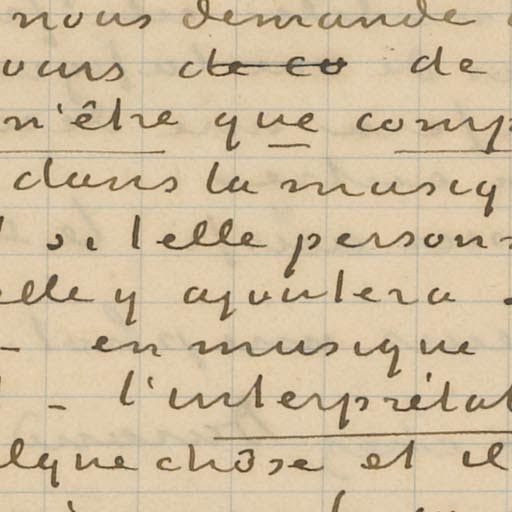 nous demande
vours de co de
n'être que comp
dans la musiq
si telle person
elle y ajoutera
- en musique
- l'interprétat
lque chose et il